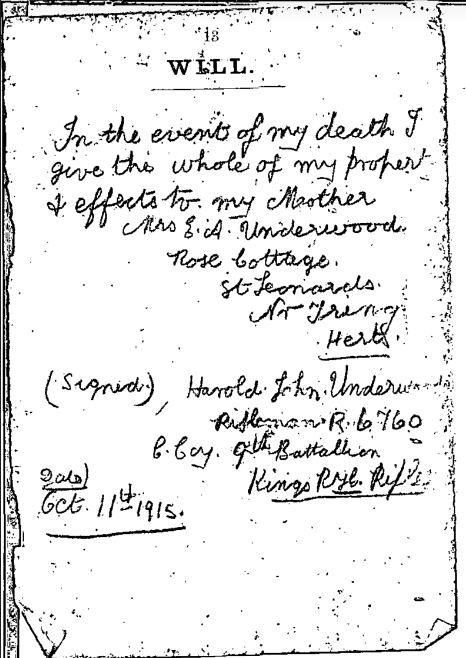 13
WILL.
In the event of my death I
give the whole of my propert
& effects to my Mother
Mrs E. A. Underwood.
Rose Cottage.
St Leonards.
Nr Tring
Herts.
(Signed) Harold John Underw
Rifleman R. 6760
C. Coy. 9th Battallion
Kings Ryl. Rif
Date)
Oct. 11th 1915.